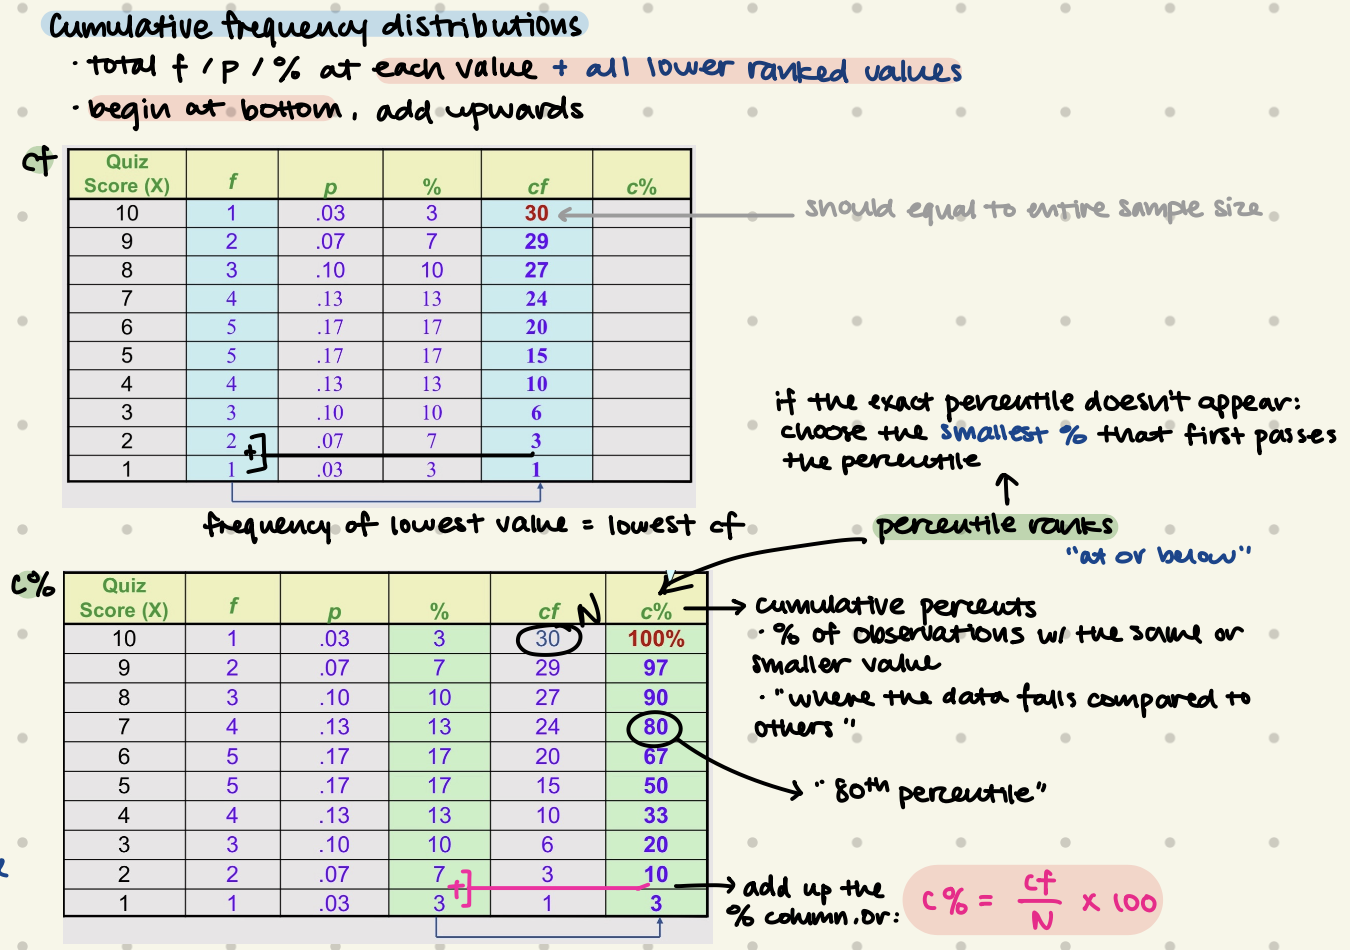 Cumulative frequency distributions
· total f / p / % at each value + all lower ranked values
· begin at bottom, add upwards
cf
Quiz Score (X) f p % cf c%
10 1 .03 3 30
should equal to entire sample size
9 2 .07 7 29
8 3 .10 10 27
7 4 .13 13 24
6 5 .17 17 20
5 5 .17 17 15
4 4 .13 13 10
3 3 .10 10 6
2 2 .07 7 3
+
1 1 .03 3 1
frequency of lowest value = lowest cf
if the exact percentile doesn't appear:
choose the smallest % that first passes
the percentile
percentile ranks
"at or below"
c%
Quiz Score (X) f p % cf c%
N
10 1 .03 3 30 100%
9 2 .07 7 29 97
8 3 .10 10 27 90
7 4 .13 13 24 80
6 5 .17 17 20 67
5 5 .17 17 15 50
4 4 .13 13 10 33
3 3 .10 10 6 20
2 2 .07 7 3 10
+
1 1 .03 3 1 3
cumulative percents
· % of observations w/ the same or
smaller value
· "where the data falls compared to
others"
"80th percentile"
add up the
% column. or:
c% = cf/N x 100